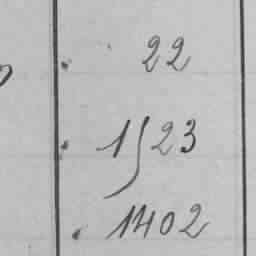 22
1523
1402